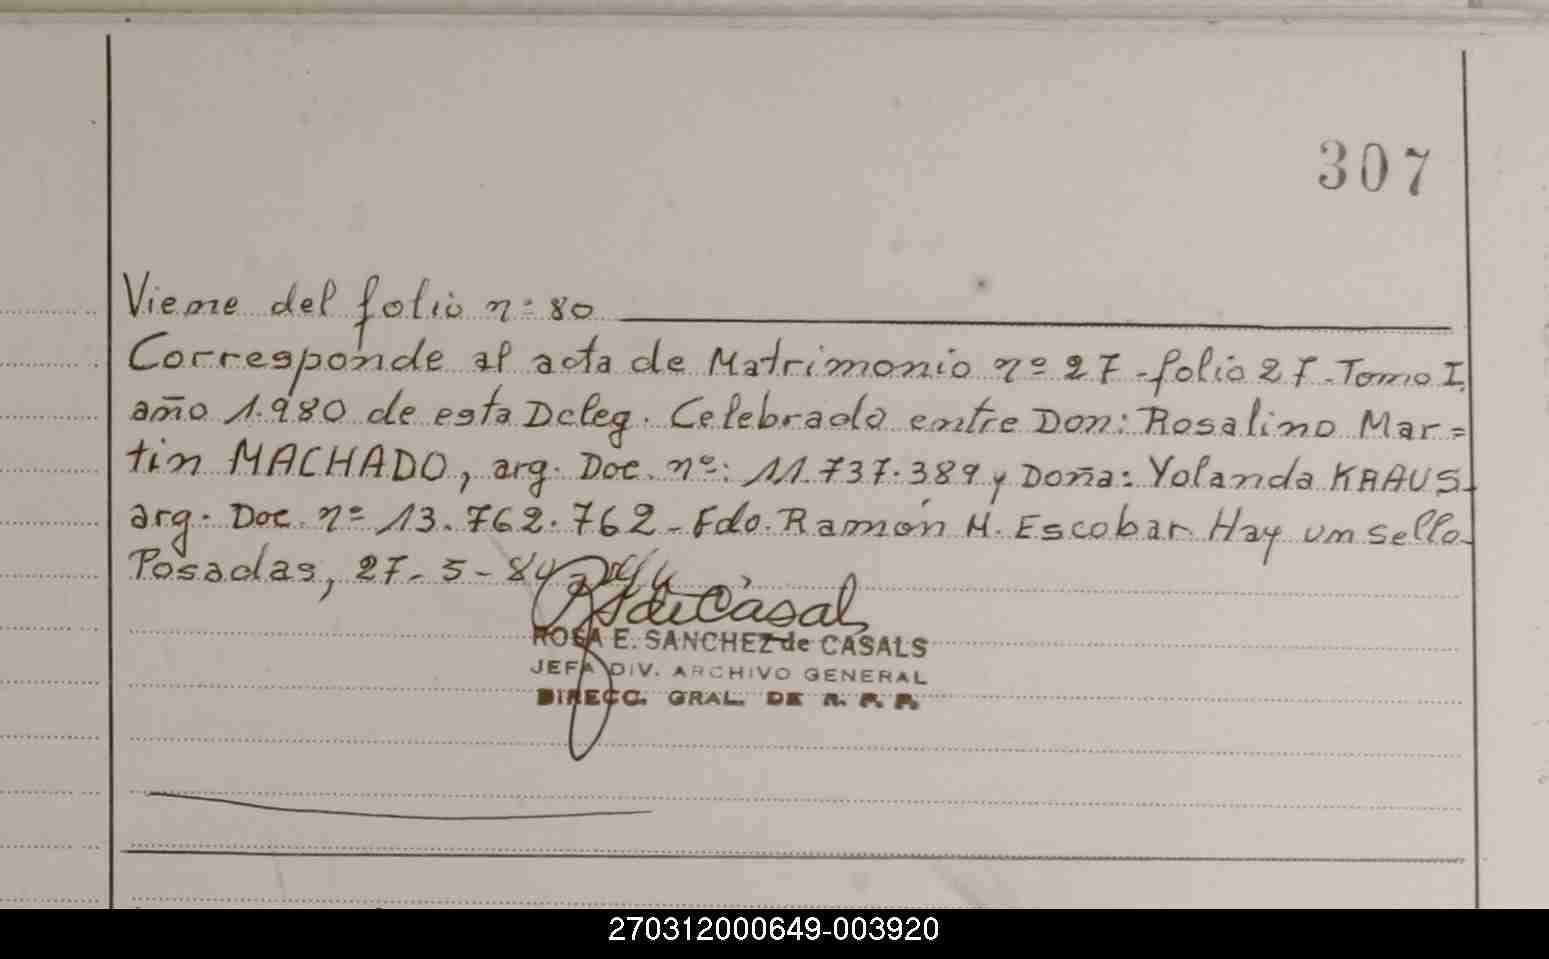 307
Viene del folio n= 80
Corresponde al acta de Matrimonio nº 27 - folio 27 - Tomo I.
año 1.980 de esta Deleg. Celebrado entre Don: Rosalino Mar=
tin MACHADO, arg. Doc. nº: 11.737.389 y Doña: Yolanda KRAUS-
arg. Doc. nº 13.762.762 - Fdo. Ramón H. Escobar. Hay un sello-
Posadas, 27-5-84
RS de Casal
ROSA E. SANCHEZ de CASALS
JEFA DIV. ARCHIVO GENERAL
DIRECC. GRAL. DE R. P. P.
270312000649-003920